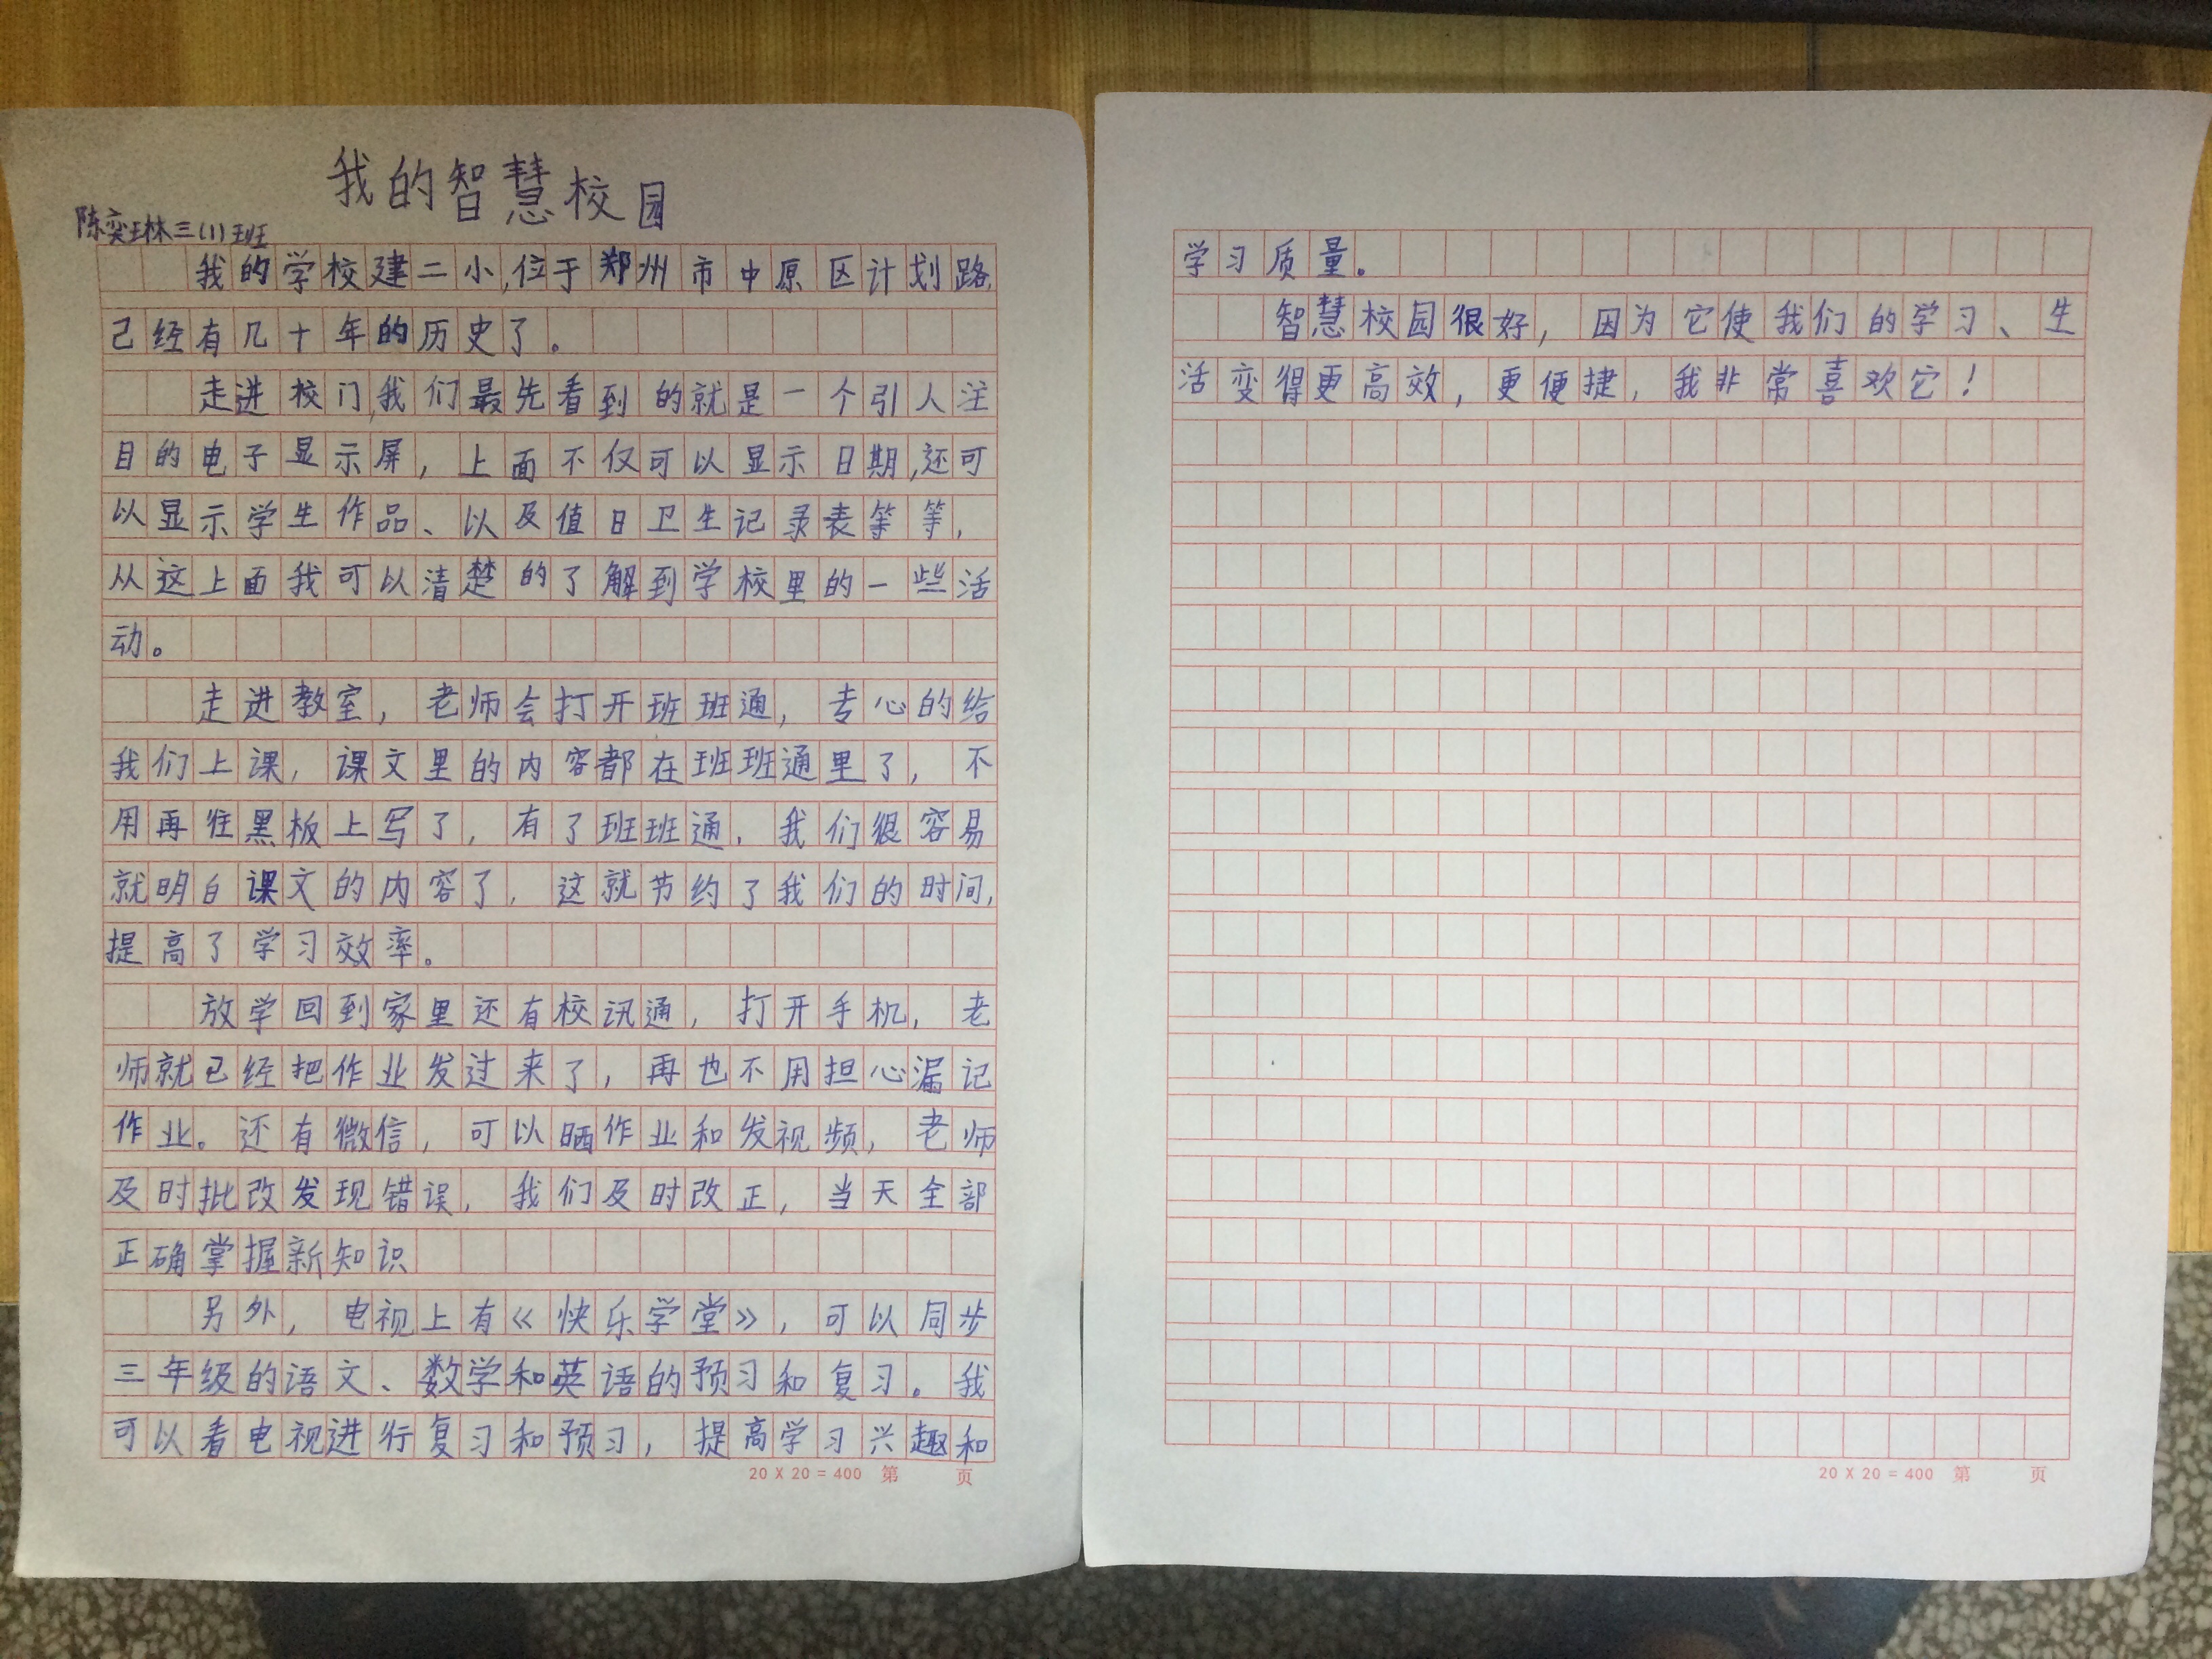 我的智慧校园
陈奕琳三(1)班
我的学校建二小,位于郑州市中原区计划路,
已经有几十年的历史了。
走进校门,我们最先看到的就是一个引人注
目的电子显示屏，上面不仅可以显示日期,还可
以显示学生作品、以及值日卫生记录表等等,
从这上面我可以清楚的了解到学校里的一些活
动。
走进教室，老师会打开班班通，专心的给
我们上课，课文里的内容都在班班通里了，不
用再往黑板上写了，有了班班通，我们很容易
就明白课文的内容了，这就节约了我们的时间,
提高了学习效率。
放学回到家里还有校讯通，打开手机，老
师就已经把作业发过来了，再也不用担心漏记
作业。还有微信，可以晒作业和发视频，老师
及时批改发现错误，我们及时改正，当天全部
正确掌握新知识
另外，电视上有《快乐学堂》，可以同步
三年级的语文、数学和英语的预习和复习。我
可以看电视进行复习和预习，提高学习兴趣和
20 X 20 = 400 第 页
学习质量。
智慧校园很好，因为它使我们的学习、生
活变得更高效，更便捷，我非常喜欢它！
20 X 20 = 400 第 页